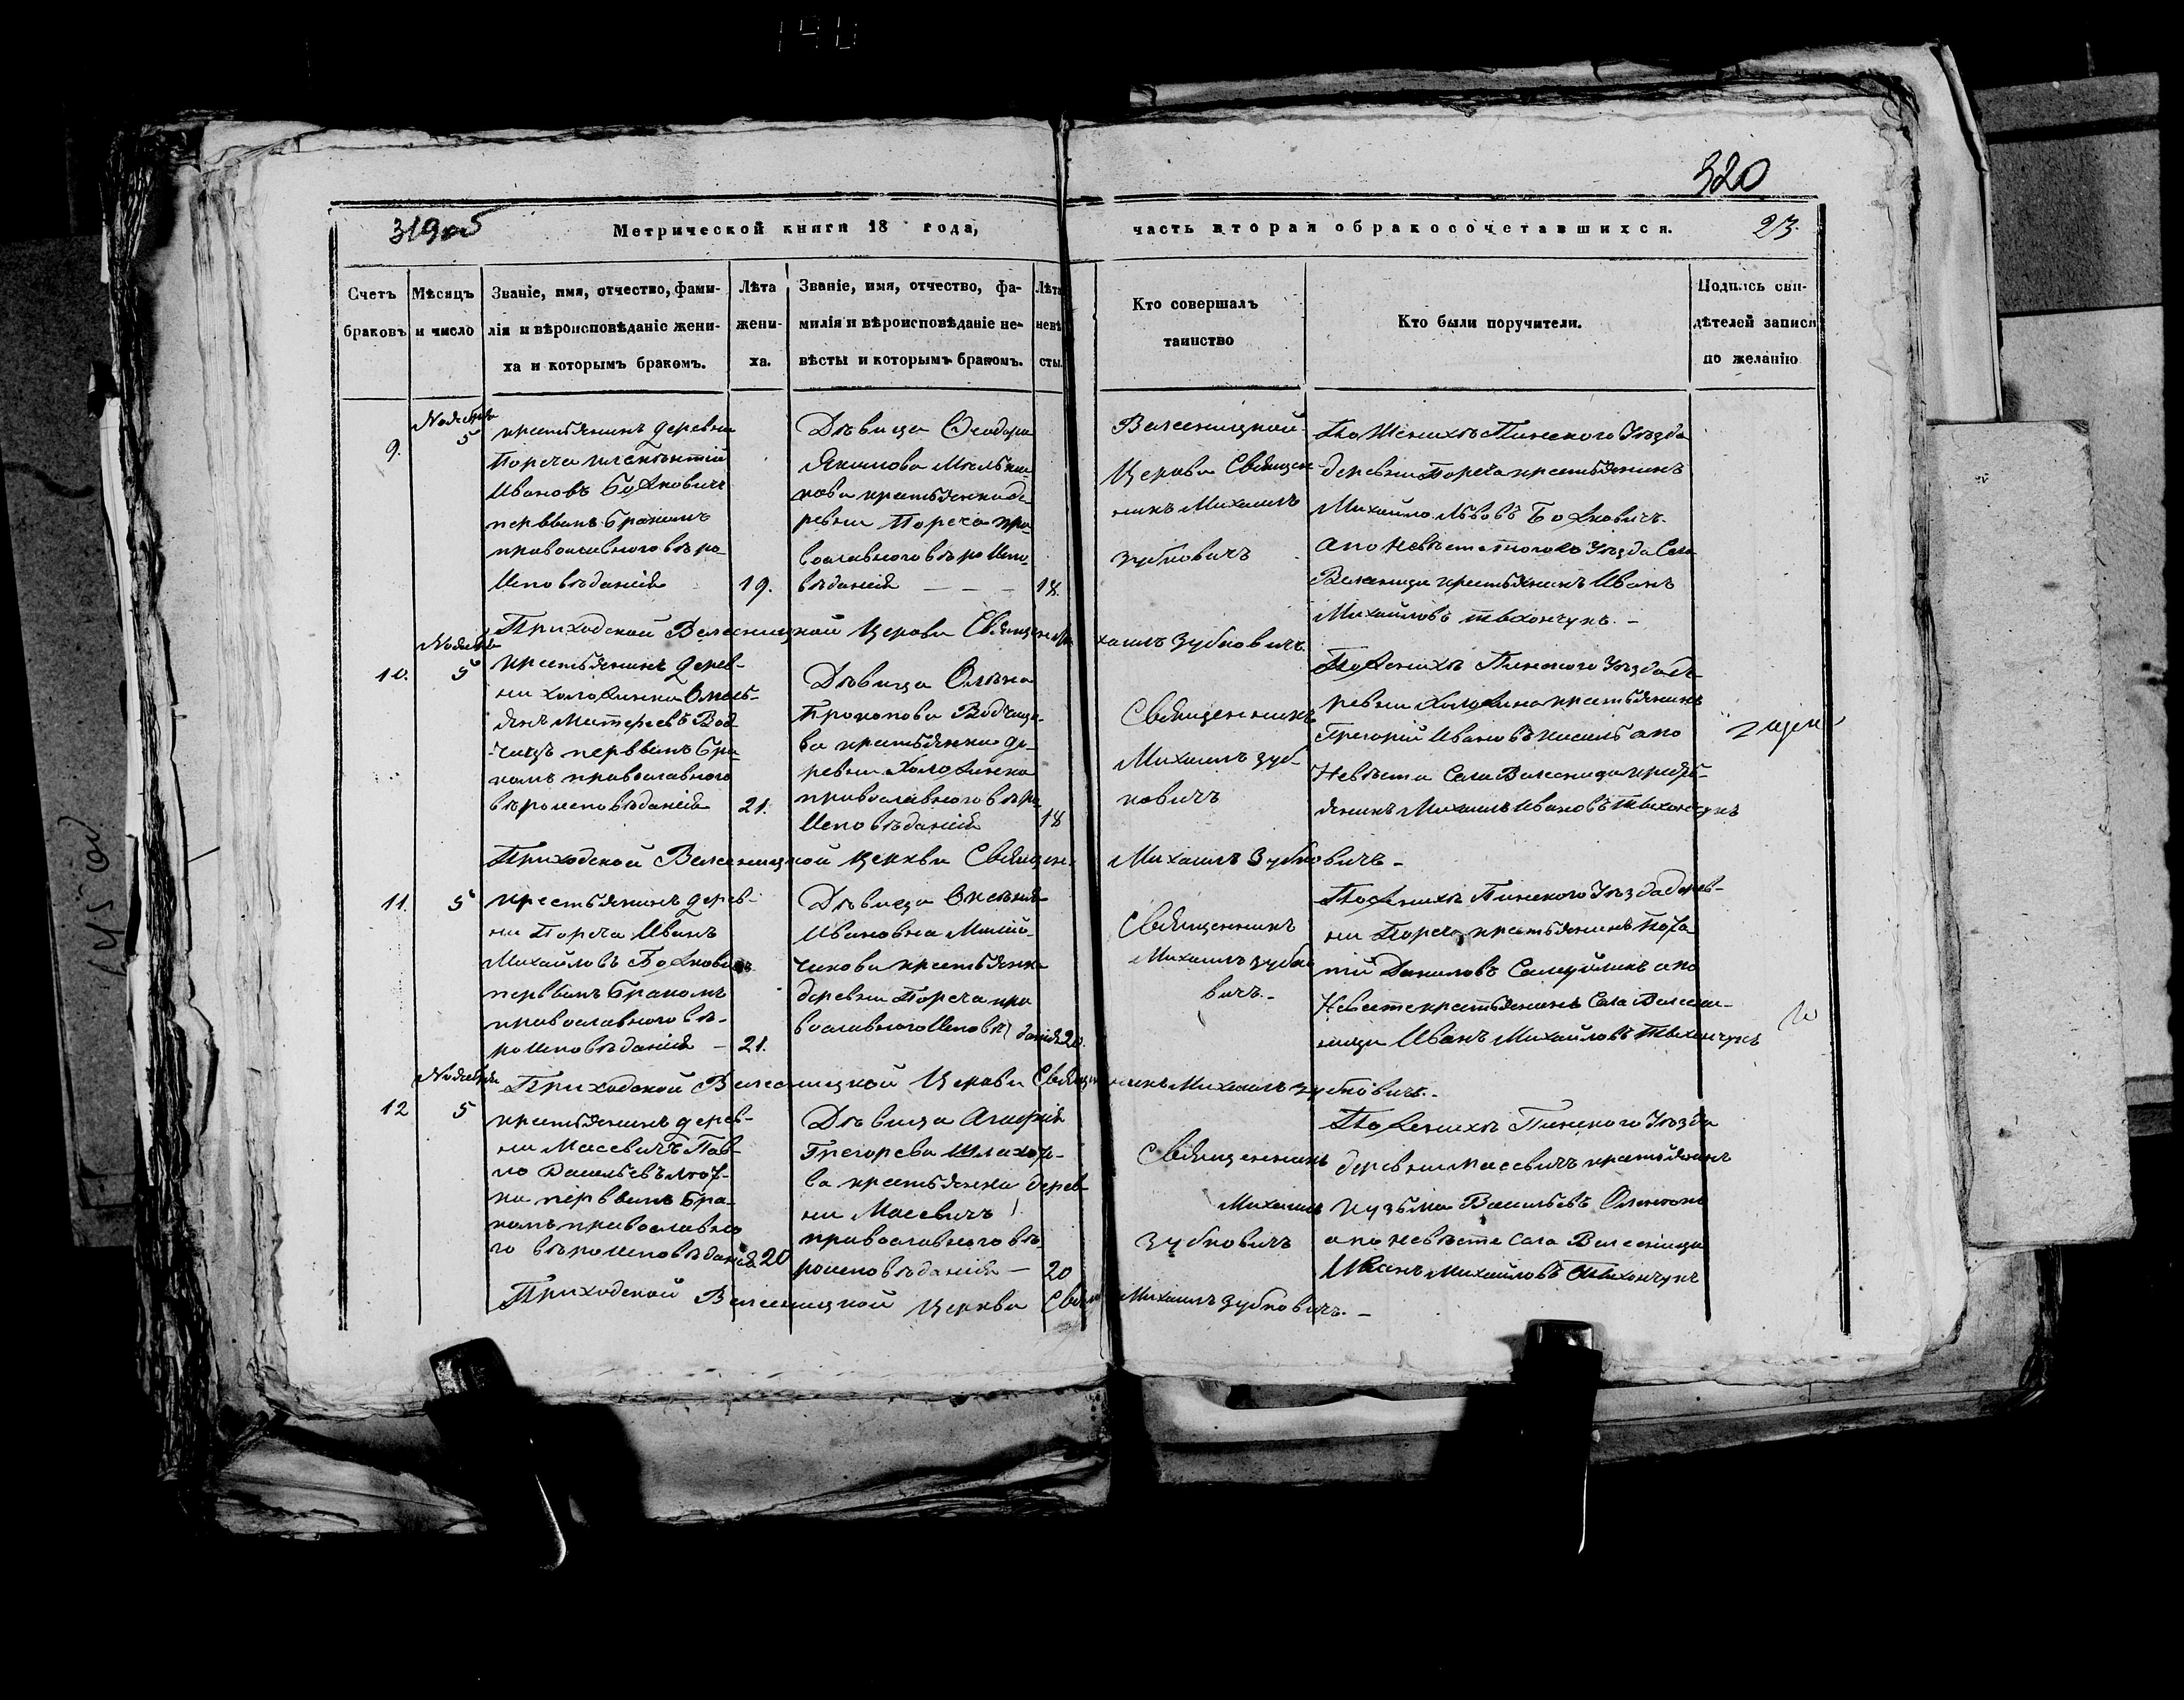 320
319об
Метрической книги 18 года,
часть вторая о бракосочетавшихся.
23.
Счетъ браковъ
Мѣсяцъ и число
Званіе, имя, отчество, фами-
лія и вѣроисповѣданіе жени-
ха и которымъ бракомъ.
Лѣта
жени-
ха.
Званіе, имя, отчество, фа-
милія и вѣроисповѣданіе не-
вѣсты и которымъ бракомъ.
Лѣта
невѣ
сты.
Кто совершалъ
таинство
Кто были поручители.
Подпись сви-
дѣтелей записи
по желанію
9.
Ноября
5
крестьянинъ деревни
Пореча
Ивановъ Божковичъ
первымъ бракомъ
православного вѣро
исповѣданія
19.
Дѣвица Ѳеодора
Якимова
крестьянка де
ревни Пореча пра
вославного вѣро испо
вѣданія
18.
Велесницкой
Церкви Священ
никъ Михаилъ
Зубковичъ
По Женихѣ Пинского Уѣзда
деревни Пореча крестьянинъ
Михайло Львовъ Божковичъ.
а по Невѣсте того жъ Уѣзда Села
Велесница крестьянинъ Иванъ
Михайловъ Тихончукъ. -
Приходской Велесницкой Церкви Священ Михаилъ Зубковичъ.
10.
Ноября
5
крестьянинъ дерев-
ни Холожинки
первымъ бра
комъ православного
вѣроисповѣданія
21.
Дѣвица Олѣна
Прокопова
крестьянка де-
ревни Холожинка
православного вѣро
исповѣданія
18
Священникъ
Михаилъ Зуб-
ковичъ
По Женихѣ Пинского Уѣзда де
ревни Холожина крестьянинъ
Григорій Ивановъ Кисилъ а по
Невѣста Села Велесница кресть-
янинъ Михаилъ Ивановъ Тихончукъ
Приходской Велесницкой Церкви Священ. Михаилъ Зубковичъ -
11.
5
крестьянинъ дерев-
ни Пореча Иванъ
Михайловъ Божковичъ
первымъ бракомъ
православного вѣ-
ро исповѣданія -
21.
Дѣвица Оксенія
Ивановна
крестьянка
деревни Пореча пра
вославного исповѣ данія
20.
Священникъ
Михаилъ Зубко
вичъ. -
По Женихѣ Пинского Уѣзда дерев-
ни Пореча крестьянинъ
Даниловъ а по
Невесте крестьянинъ Села Велес-
ницы Иванъ Михайловъ Тихончукъ
Приходской Велесницкой Церкви Священникъ Михаилъ Зубковичъ. -
12
Ноября
5
крестьянинъ дерев-
ни Масевичъ Пав-
ло
первымъ бра-
комъ православно
го вѣро исповѣданія
20
Дѣвица Агафія
Григорева
крестьянка дерев
ни Масевичъ
православного вѣ-
роисповѣданія -
20
Священникъ
Михаилъ
Зубковичъ
По Женихѣ Пинского Уѣзда
деревни Масевичъ крестьянинъ
Кузьма Васильевъ
а по невѣсте Села Велесница
Иванъ Михайловъ Тихончукъ
Приходской Велесницкой Церкви Священ Михаилъ Зубковичъ. -